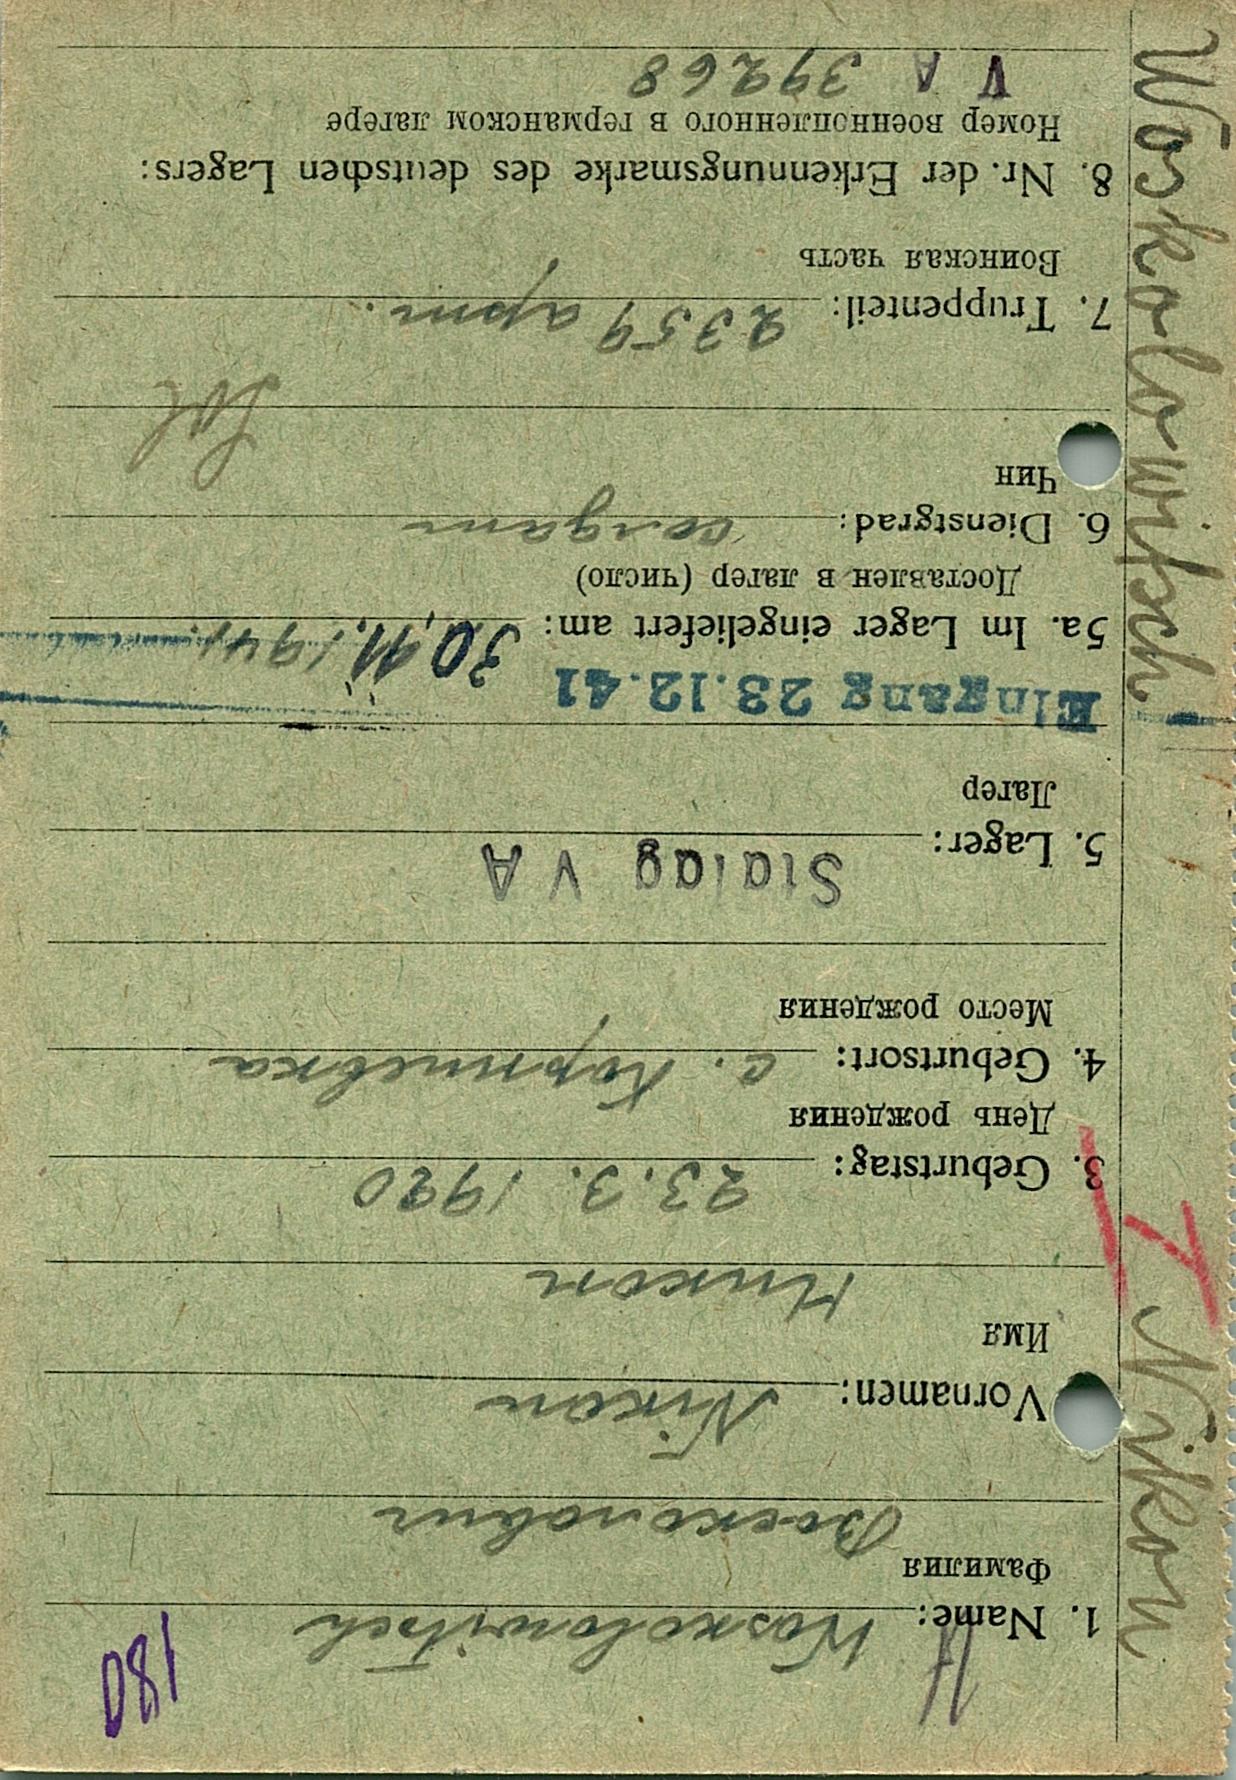 180
1. Name: Woskolowitsch
Фамилия
Восколович
Vornamen: Nikon
Имя
Никон
3. Geburtstag: 23.3.1920
День рождения
4. Geburtsort: с.
Место рождения
5. Lager: Stalag V A
Лагер
Eingang 23.12.41
5a. Im Lager eingeliefert am: 30.11.1941
Доставлен в лагер (число)
6. Dienstgrad: солдат
Чин
Sol
7. Truppenteil: 2359 арт.
Воинская часть
8. Nr. der Erkennungsmarke des deutschen Lagers:
Номер военнопленного в германском лагере
V A 39268
Woskolowitsch Nikon